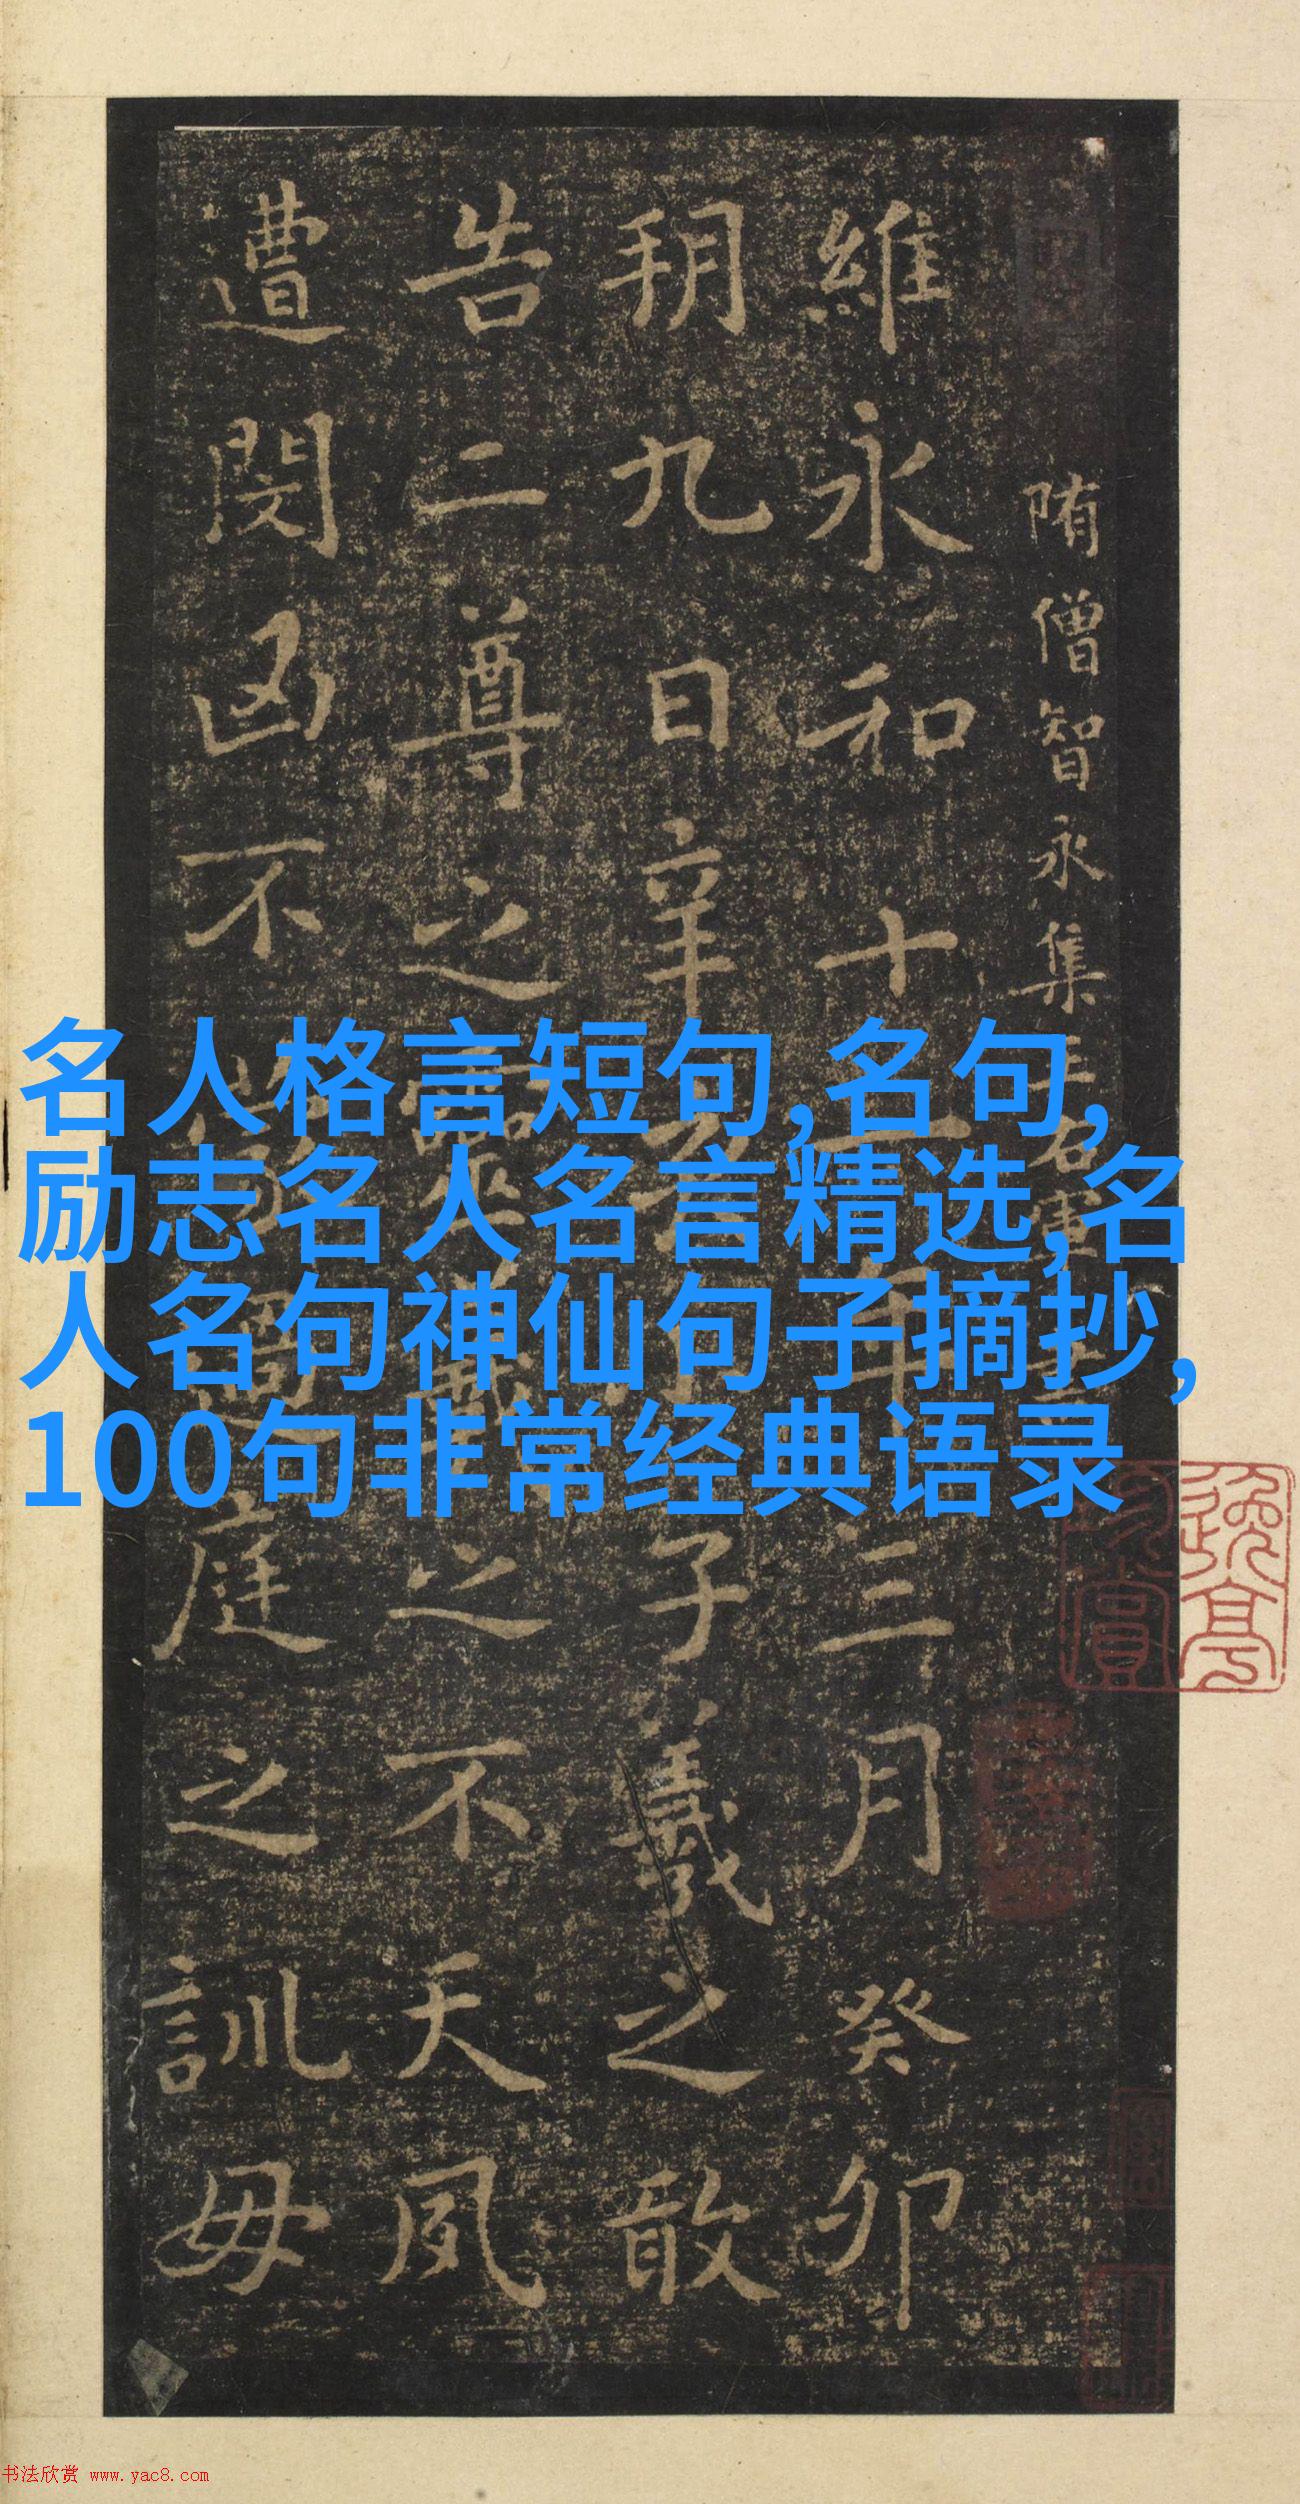 隋僧智永集王右軍
維永和十一年三月癸卯
朔九日辛亥小子羲之敢
告二尊之靈羲之不天夙
遭閔凶不蒙過庭之訓毋
名人格言短句,名句,
励志名人名言精选,名
人名句神仙句子摘抄,
100句非常经典语录
书法欣赏 www.yac8.com